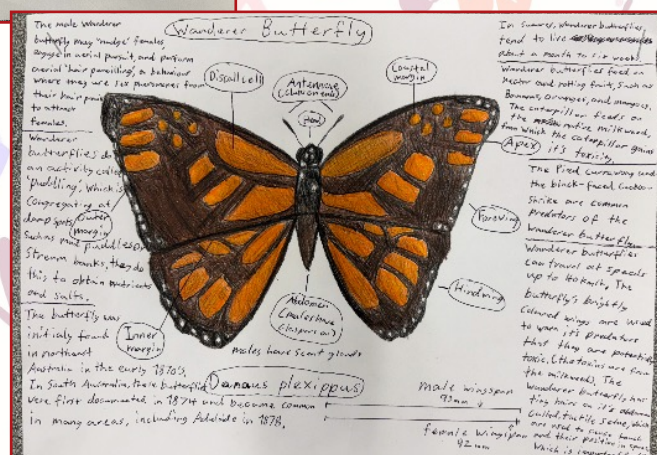 Wanderer Butterfly
The male Wanderer
butterfly may "nudge" females,
engage in aerial pursuit, and perform
aerial 'hair pencilling', a behaviour
where they use pheromones from
their hair pencils
to attract
females.
Wanderer
butterflies do
an activity called
'puddling', which is
congregating at
damp spots
such as mud puddles or
stream banks, they do
this to obtain nutrients
and salts.
The butterfly was
initialy found
in northeast
Australia in the early 1870's.
In South Australia, these butterflies
were first documented in 1874 and became common
in many areas, including Adelaide in 1878.
Discall cell
Antennae
(clubs on ends)
Head
Coastal
margin
Apex
Forewing
Hindwing
Outer
margin
Inner
margin
Abdomen
(males have
claspers on)
males have scent glands
Danaus plexippus
male wingspan
female wingspan
92mm
In Summer, Wanderer butterflies
tend to live
about a month to six weeks.
Wanderer butterflies feed on
nectar and rotting fruit, such as
Bananas, oranges, and mangoes.
The caterpillar feeds on
the native milkweed,
from which the caterpillar gains
it's toxicity.
The Pied currawong and
the black-faced cuckoo-
shrike are common
predators of the
Wanderer butterfly.
Wanderer butterflies
can travel at speeds
up to
butterfly's brightly
coloured wings are used
to warn it's predators
that they are potentially
toxic, (the toxins are from
the milkweed). The
Wanderer butterfly, has
tiny hairs on it's abdomen
called, tactile setae, which
are used to sense touch
and their position in space,
which is important